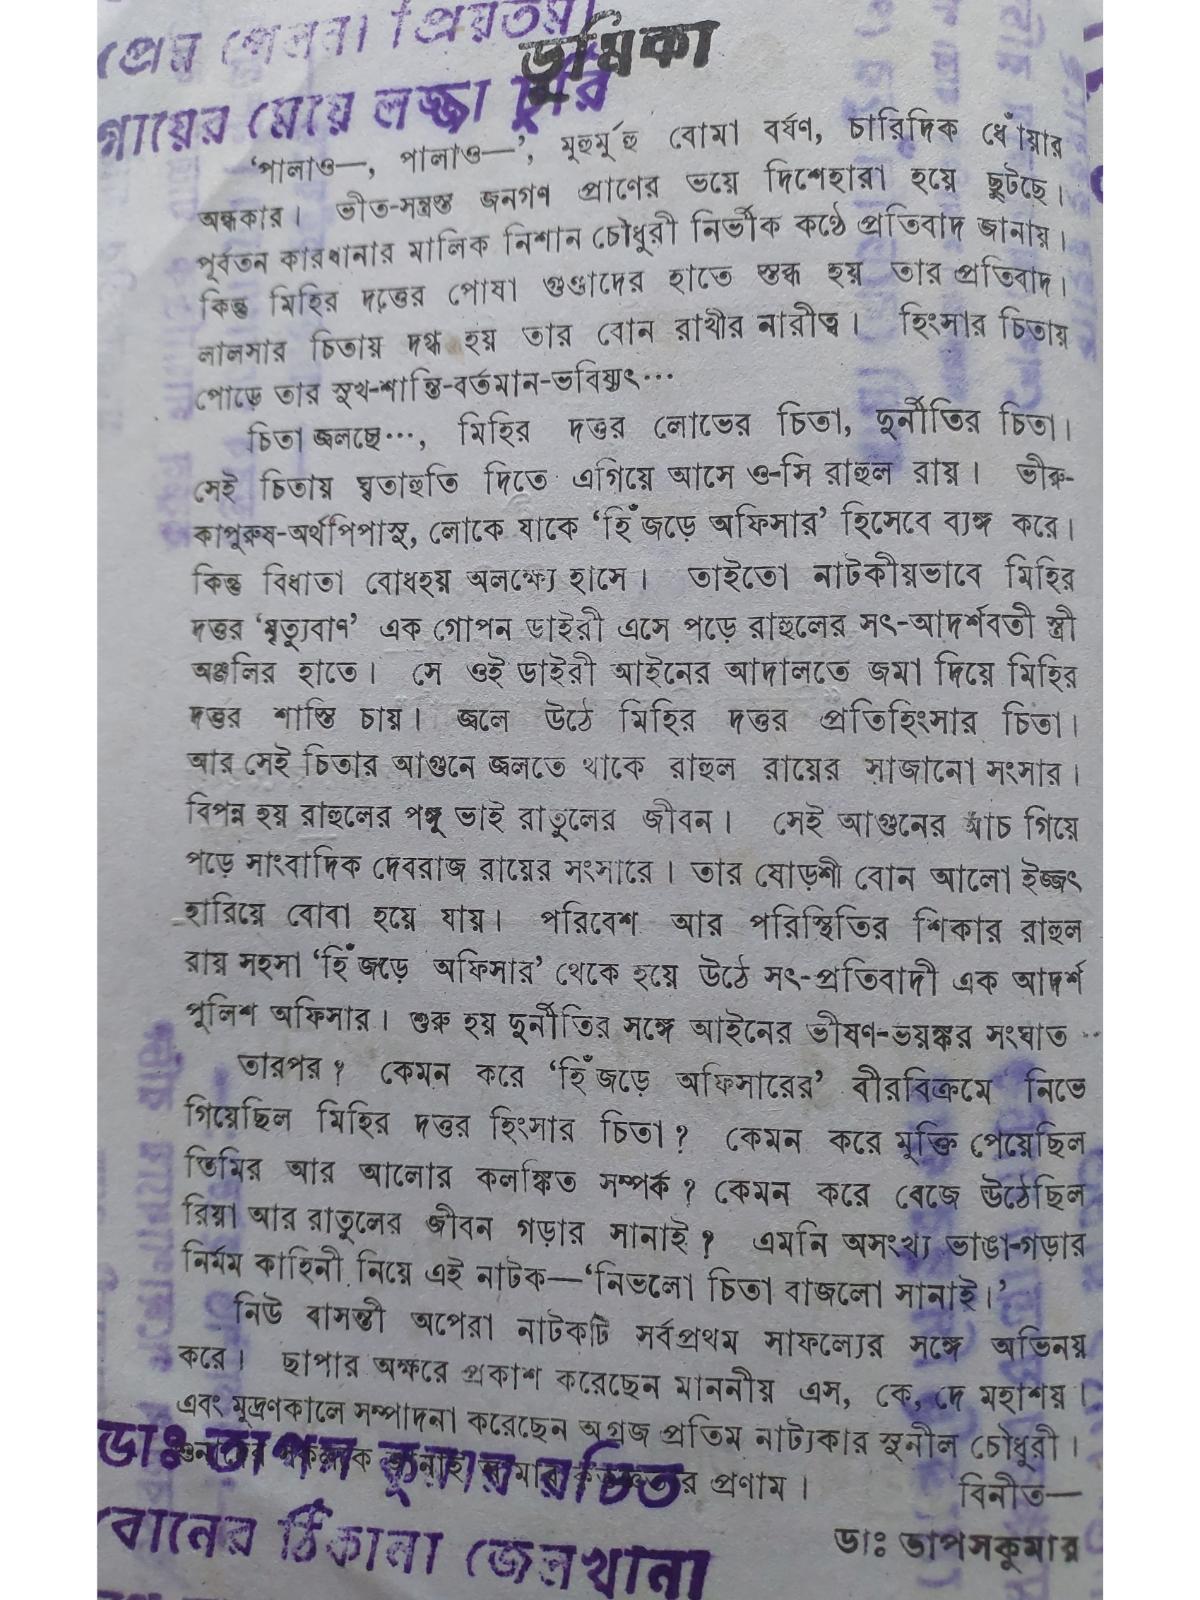 প্রেম পেলনা প্রিয়তমা
ভূমিকা
গায়ের মেয়ে লজ্জা চুরি
‘পালাও—, পালাও—’, মুহুর্মুহু বোমা বর্ষণ, চারিদিক ধোঁয়ার
অন্ধকার। ভীত-সন্ত্রস্ত জনগণ প্রাণের ভয়ে দিশেহারা হয়ে ছুটছে।
পূর্বতন কারখানার মালিক নিশান চৌধুরী নির্ভীক কণ্ঠে প্রতিবাদ জানায়।
কিন্তু মিহির দত্তের পোষা গুণ্ডাদের হাতে স্তব্ধ হয় তার প্রতিবাদ।
লালসার চিতায় দগ্ধ হয় তার বোন রাখীর নারীত্ব। হিংসার চিতায়
পোড়ে তার সুখ-শান্তি-বর্তমান-ভবিষ্যৎ···
চিতা জ্বলছে···, মিহির দত্তর লোভের চিতা, দুর্নীতির চিতা।
সেই চিতায় ঘৃতাহুতি দিতে এগিয়ে আসে ও-সি রাহুল রায়। ভীরু-
কাপুরুষ-অর্থপিপাসু, লোকে যাকে ‘হিঁজড়ে অফিসার’ হিসেবে ব্যঙ্গ করে।
কিন্তু বিধাতা বোধহয় অলক্ষ্যে হাসে। তাইতো নাটকীয়ভাবে মিহির
দত্তর ‘মৃত্যুবাণ’ এক গোপন ডাইরী এসে পড়ে রাহুলের সৎ-আদর্শবতী স্ত্রী
অঞ্জলির হাতে। সে ওই ডাইরী আইনের আদালতে জমা দিয়ে মিহির
দত্তর শাস্তি চায়। জ্বলে উঠে মিহির দত্তর প্রতিহিংসার চিতা।
আর সেই চিতার আগুনে জ্বলতে থাকে রাহুল রায়ের সাজানো সংসার।
বিপন্ন হয় রাহুলের পঙ্গু ভাই রাতুলের জীবন। সেই আগুনের আঁচ গিয়ে
পড়ে সাংবাদিক দেবরাজ রায়ের সংসারে। তার ষোড়শী বোন আলো ইজ্জৎ
হারিয়ে বোবা হয়ে যায়। পরিবেশ আর পরিস্থিতির শিকার রাহুল
রায় সহসা ‘হিঁজড়ে অফিসার’ থেকে হয়ে উঠে সৎ-প্রতিবাদী এক আদর্শ
পুলিশ অফিসার। শুরু হয় দুর্নীতির সঙ্গে আইনের ভীষণ-ভয়ঙ্কর সংঘাত··
তারপর? কেমন করে ‘হিঁজড়ে অফিসারের’ বীরবিক্রমে নিভে
গিয়েছিল মিহির দত্তর হিংসার চিতা? কেমন করে মুক্তি পেয়েছিল
তিমির আর আলোর কলঙ্কিত সম্পর্ক? কেমন করে বেজে উঠেছিল
রিয়া আর রাতুলের জীবন গড়ার সানাই? এমনি অসংখ্য ভাঙা-গড়ার
নির্মম কাহিনী নিয়ে এই নাটক—‘নিভলো চিতা বাজলো সানাই।’
নিউ বাসন্তী অপেরা নাটকটি সর্বপ্রথম সাফল্যের সঙ্গে অভিনয়
করে। ছাপার অক্ষরে প্রকাশ করেছেন মাননীয় এস, কে, দে মহাশয়।
এবং মুদ্রণকালে সম্পাদনা করেছেন অগ্রজ প্রতিম নাট্যকার সুনীল চৌধুরী।
প্রণাম। বিনীত—
ডাঃ তাপস কুমার রচিত
ডাঃ তাপসকুমার
বোনের ঠিকানা জেলখানা